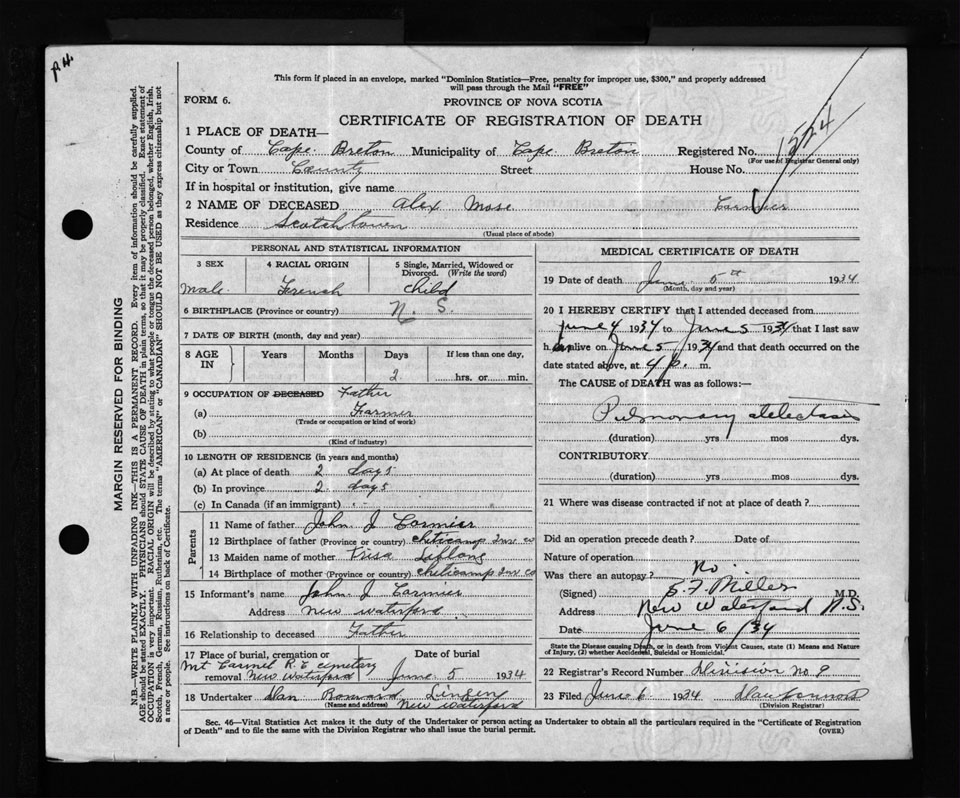 This form if placed in an envelope, marked "Dominion Statistics—Free, penalty for improper use, $300," and properly addressed
will pass through the Mail "FREE"
FORM 6.
PROVINCE OF NOVA SCOTIA
CERTIFICATE OF REGISTRATION OF DEATH
1 PLACE OF DEATH—
County of Cape Breton Municipality of Cape Breton Registered No.
(For use of Registrar General only)
City or Town County Street House No.
If in hospital or institution, give name
2 NAME OF DECEASED Alex Mose Cormier
Residence Scotchtown
(Usual place of abode)
PERSONAL AND STATISTICAL INFORMATION
3 SEX 4 RACIAL ORIGIN 5 Single, Married, Widowed or
Divorced. (Write the word)
Male French Child
6 BIRTHPLACE (Province or country) N. S.
7 DATE OF BIRTH (month, day and year)
8 AGE IN Years Months Days If less than one day,
2 hrs. or min.
9 OCCUPATION OF DECEASED Father
(a) Farmer
(Trade or occupation or kind of work)
(b)
(Kind of industry)
10 LENGTH OF RESIDENCE (in years and months)
(a) At place of death 2 days
(b) In province 2 days
(c) In Canada (if an immigrant)
Parents
11 Name of father John J Cormier
12 Birthplace of father (Province or country) cheticamp Inv co
13 Maiden name of mother
14 Birthplace of mother (Province or country) cheticamp Inv co
15 Informant's name John J Cormier
Address New Waterford
16 Relationship to deceased Father
17 Place of burial, cremation or Date of burial
Mt Carmel R.C cemetary
removal New Waterford June 5 1934
18 Undertaker Dan
(Name and address) New Waterford
MEDICAL CERTIFICATE OF DEATH
19 Date of death June 5th 1934
(Month, day and year)
20 I HEREBY CERTIFY that I attended deceased from
June 4 1934 to June 5 1934 that I last saw
h im alive on June 5 1934 and that death occurred on the
date stated above, at 4 p. m.
The CAUSE of DEATH was as follows:—
Pulmonary atelectasis
(duration) yrs mos dys.
CONTRIBUTORY
(duration) yrs mos dys.
21 Where was disease contracted if not at place of death?
Did an operation precede death? Date of
Nature of operation
Was there an autopsy? No.
(Signed) Miller M.D.
Address New Waterford N.S.
Date June 6/34
State the Disease causing Death, or in death from Violent Causes, state (1) Means and Nature
of Injury, (2) whether Accidental, Suicidal or Homicidal.
22 Registrar's Record Number Division No 9
23 Filed June 6 1934
(Division Registrar)
Sec. 46—Vital Statistics Act makes it the duty of the Undertaker or person acting as Undertaker to obtain all the particulars required in the "Certificate of Registration
of Death" and to file the same with the Division Registrar who shall issue the burial permit.
(OVER)
MARGIN RESERVED FOR BINDING
N.B.—WRITE PLAINLY WITH UNFADING INK—THIS IS A PERMANENT RECORD. Every item of information should be carefully supplied.
AGE should be stated EXACTLY. PHYSICIANS should STATE CAUSE OF DEATH in plain terms, so that it may be properly classified. Exact statement of
OCCUPATION is very important. RACIAL ORIGIN will be described by stating to what people or tongue the deceased person belonged, whether English, Irish,
Scotch, French, German, Russian, Ruthenian, etc. The terms "AMERICAN" or "CANADIAN" SHOULD NOT BE USED as they express citizenship but not
a race or people. See instructions on back of Certificate.